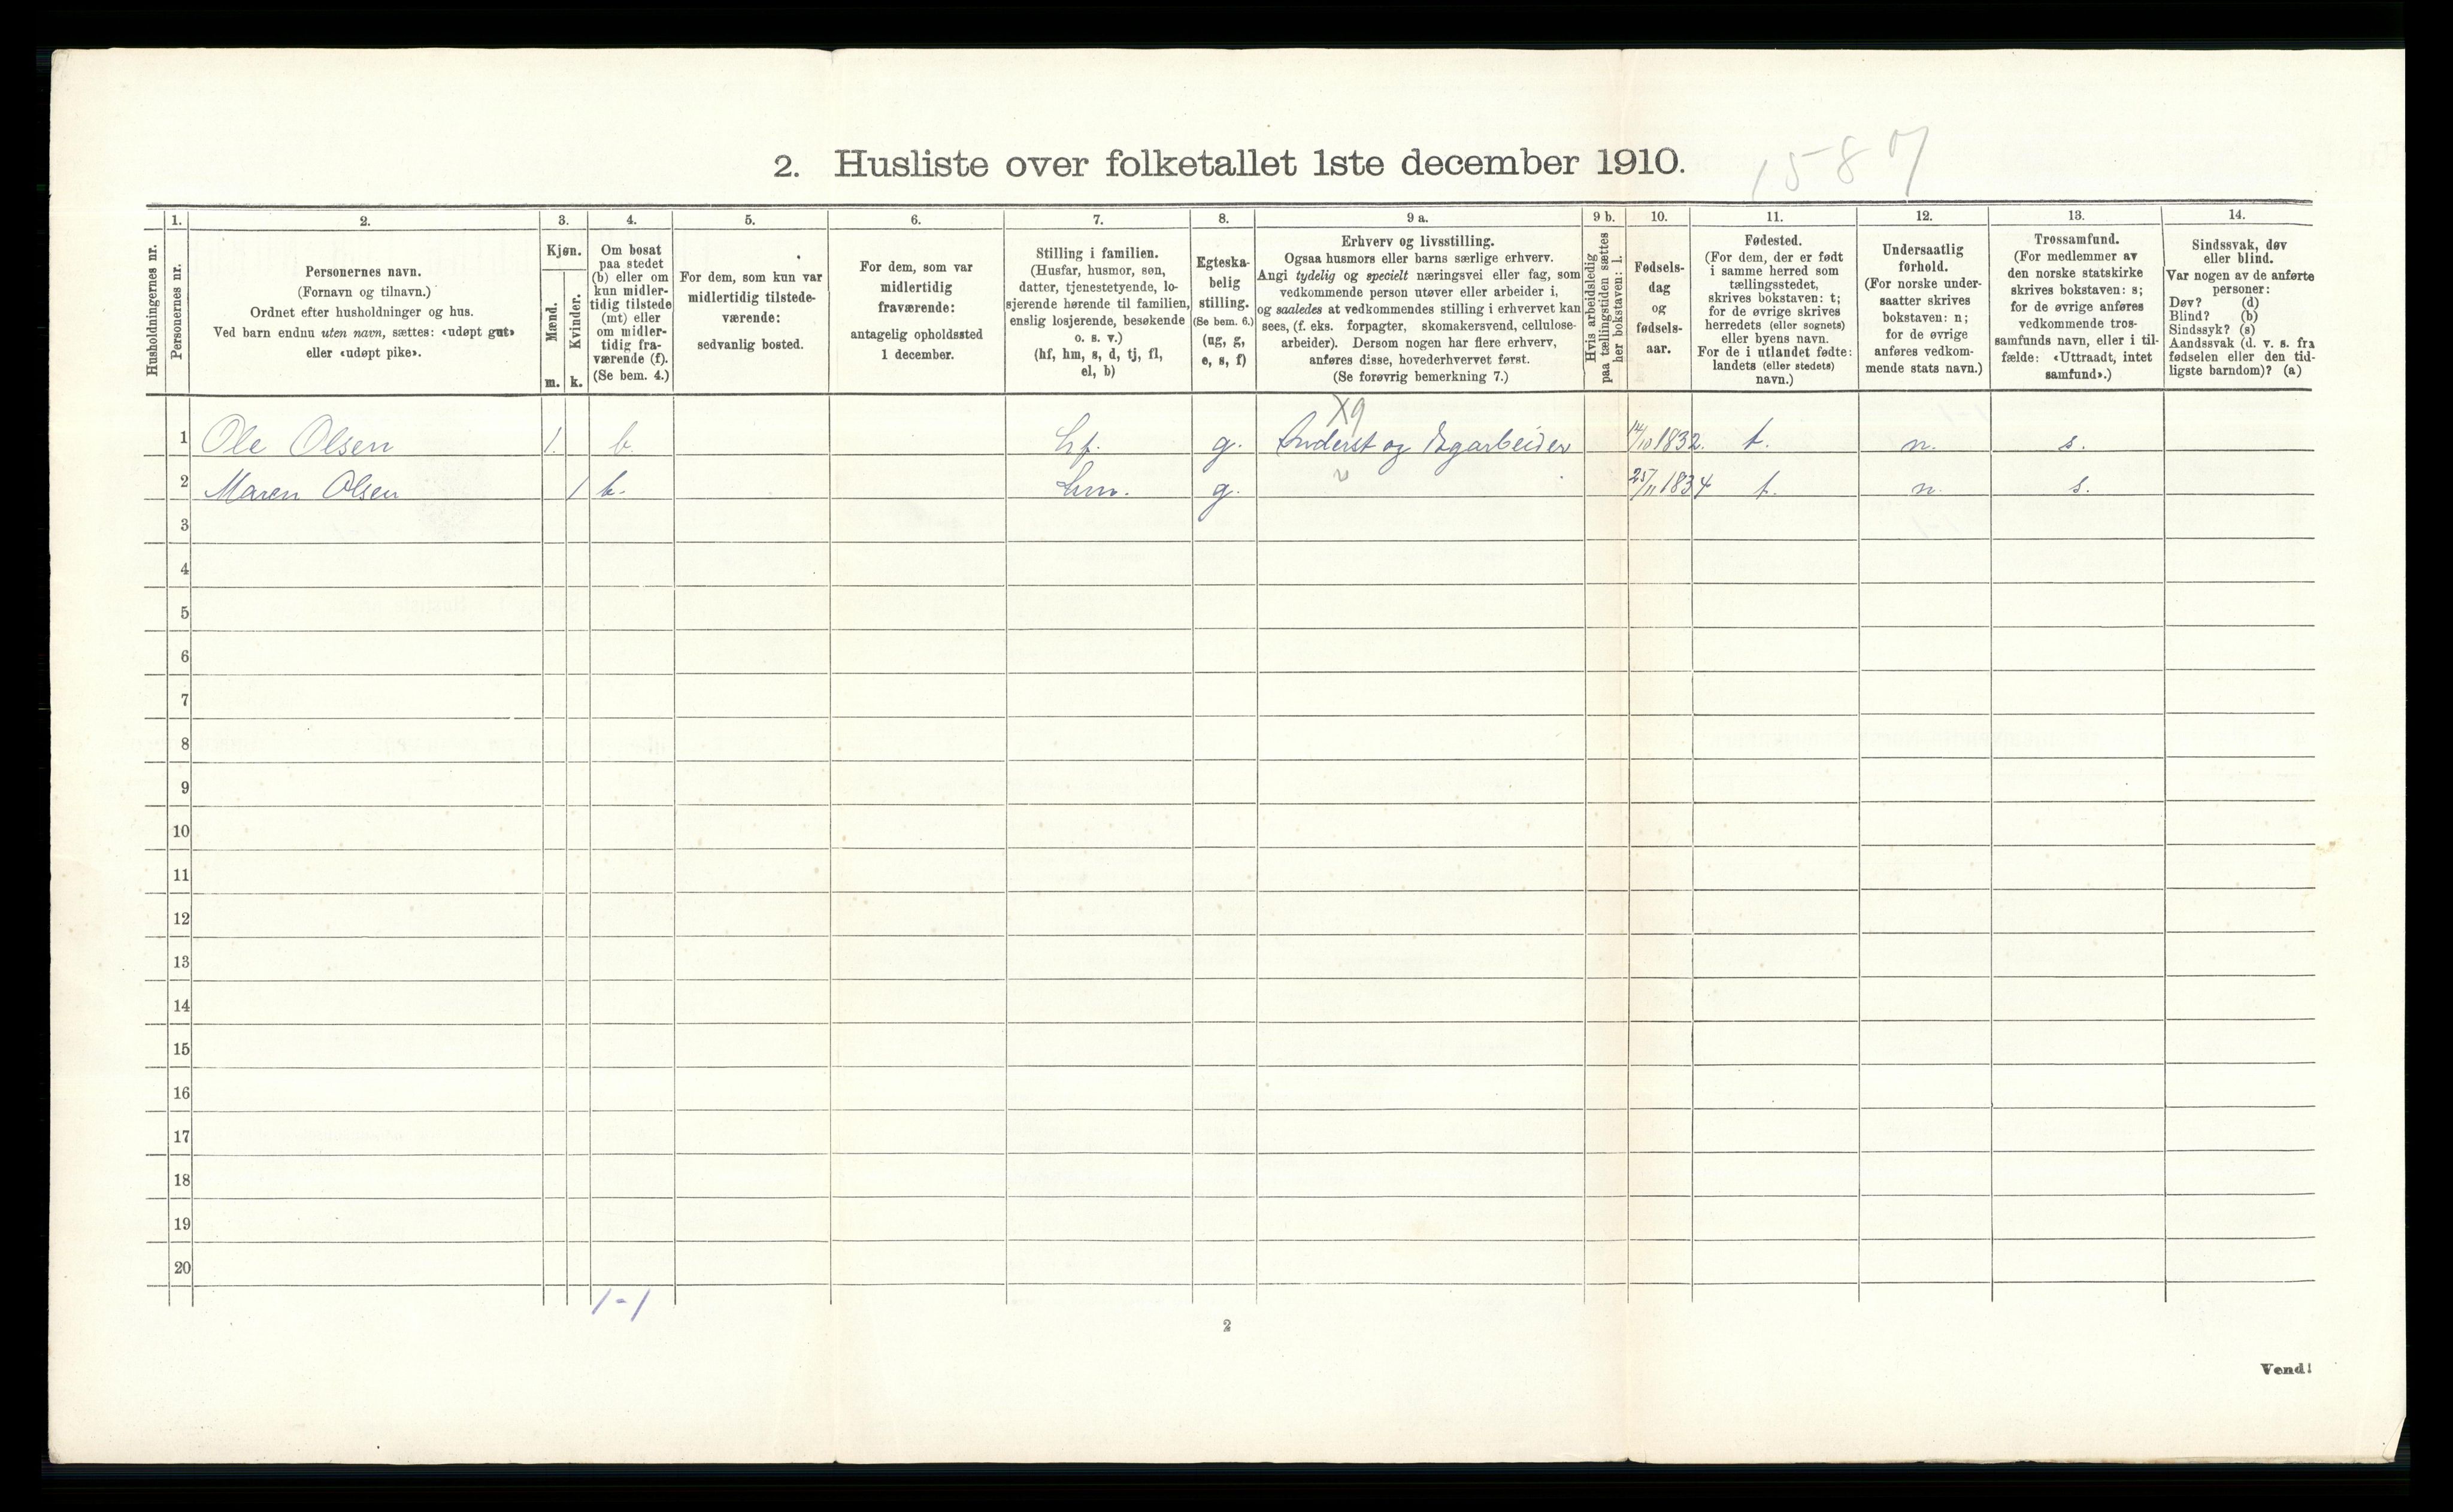 2. Husliste over folketallet 1ste december 1910.
1587
1.
2.
3.
4.
5.
6.
7.
8.
9 a.
9 b.
10.
11.
12.
13.
14.
Husholdningernes nr.
Personernes nr.
Personernes navn.
(Fornavn og tilnavn.)
Ordnet efter husholdninger og hus.
Ved barn endnu uten navn, sættes: «udøpt gut»
eller «udøpt pike».
Kjøn.
Mænd.
Kvinder.
m.
k.
Om bosat
paa stedet
(b) eller om
kun midler-
tidig tilstede
(mt) eller
om midler-
tidig fra-
værende (f).
(Se bem. 4.)
For dem, som kun var
midlertidig tilstede-
værende:
sedvanlig bosted.
For dem, som var
midlertidig
fraværende:
antagelig opholdssted
1 december.
Stilling i familien.
(Husfar, husmor, søn,
datter, tjenestetyende, lo-
sjerende hørende til familien,
enslig losjerende, besøkende
o. s. v.)
(hf, hm, s, d, tj, fl,
el, b)
Egteska-
belig
stilling.
(Se bem. 6.)
(ug, g,
e, s, f)
Erhverv og livsstilling.
Ogsaa husmors eller barns særlige erhverv.
Angi tydelig og specielt næringsvei eller fag, som
vedkommende person utøver eller arbeider i,
og saaledes at vedkommendes stilling i erhvervet kan
sees, (f. eks. forpagter, skomakersvend, cellulose-
arbeider). Dersom nogen har flere erhverv,
anføres disse, hovederhvervet først.
(Se forøvrig bemerkning 7.)
Hvis arbeidsledig
paa tællingstiden sættes
her bokstaven: l.
Fødsels-
dag
og
fødsels-
aar.
Fødested.
(For dem, der er født
i samme herred som
tællingsstedet,
skrives bokstaven: t;
for de øvrige skrives
herredets (eller sognets)
eller byens navn.
For de i utlandet fødte:
landets (eller stedets)
navn.)
Undersaatlig
forhold.
(For norske under-
saatter skrives
bokstaven: n;
for de øvrige
anføres vedkom-
mende stats navn.)
Trossamfund.
(For medlemmer av
den norske statskirke
skrives bokstaven: s;
for de øvrige anføres
vedkommende tros-
samfunds navn, eller i til-
fælde: «Uttraadt, intet
samfund».)
Sindssvak, døv
eller blind.
Var nogen av de anførte
personer:
Døv? (d)
Blind? (b)
Sindssyk? (s)
Aandssvak (d. v. s. fra
fødselen eller den tid-
ligste barndom)? (a)
X9
1 Ole Olsen 1. b. hf. g. Inderst og 14/10 1832. t. n. s.
2 Maren Olsen 1 b. hm. g. 25/11 1834 t. n. s.
3
4
5
6
7
8
9
10
11
12
13
14
15
16
17
18
19
20
1-1
2
Vend!